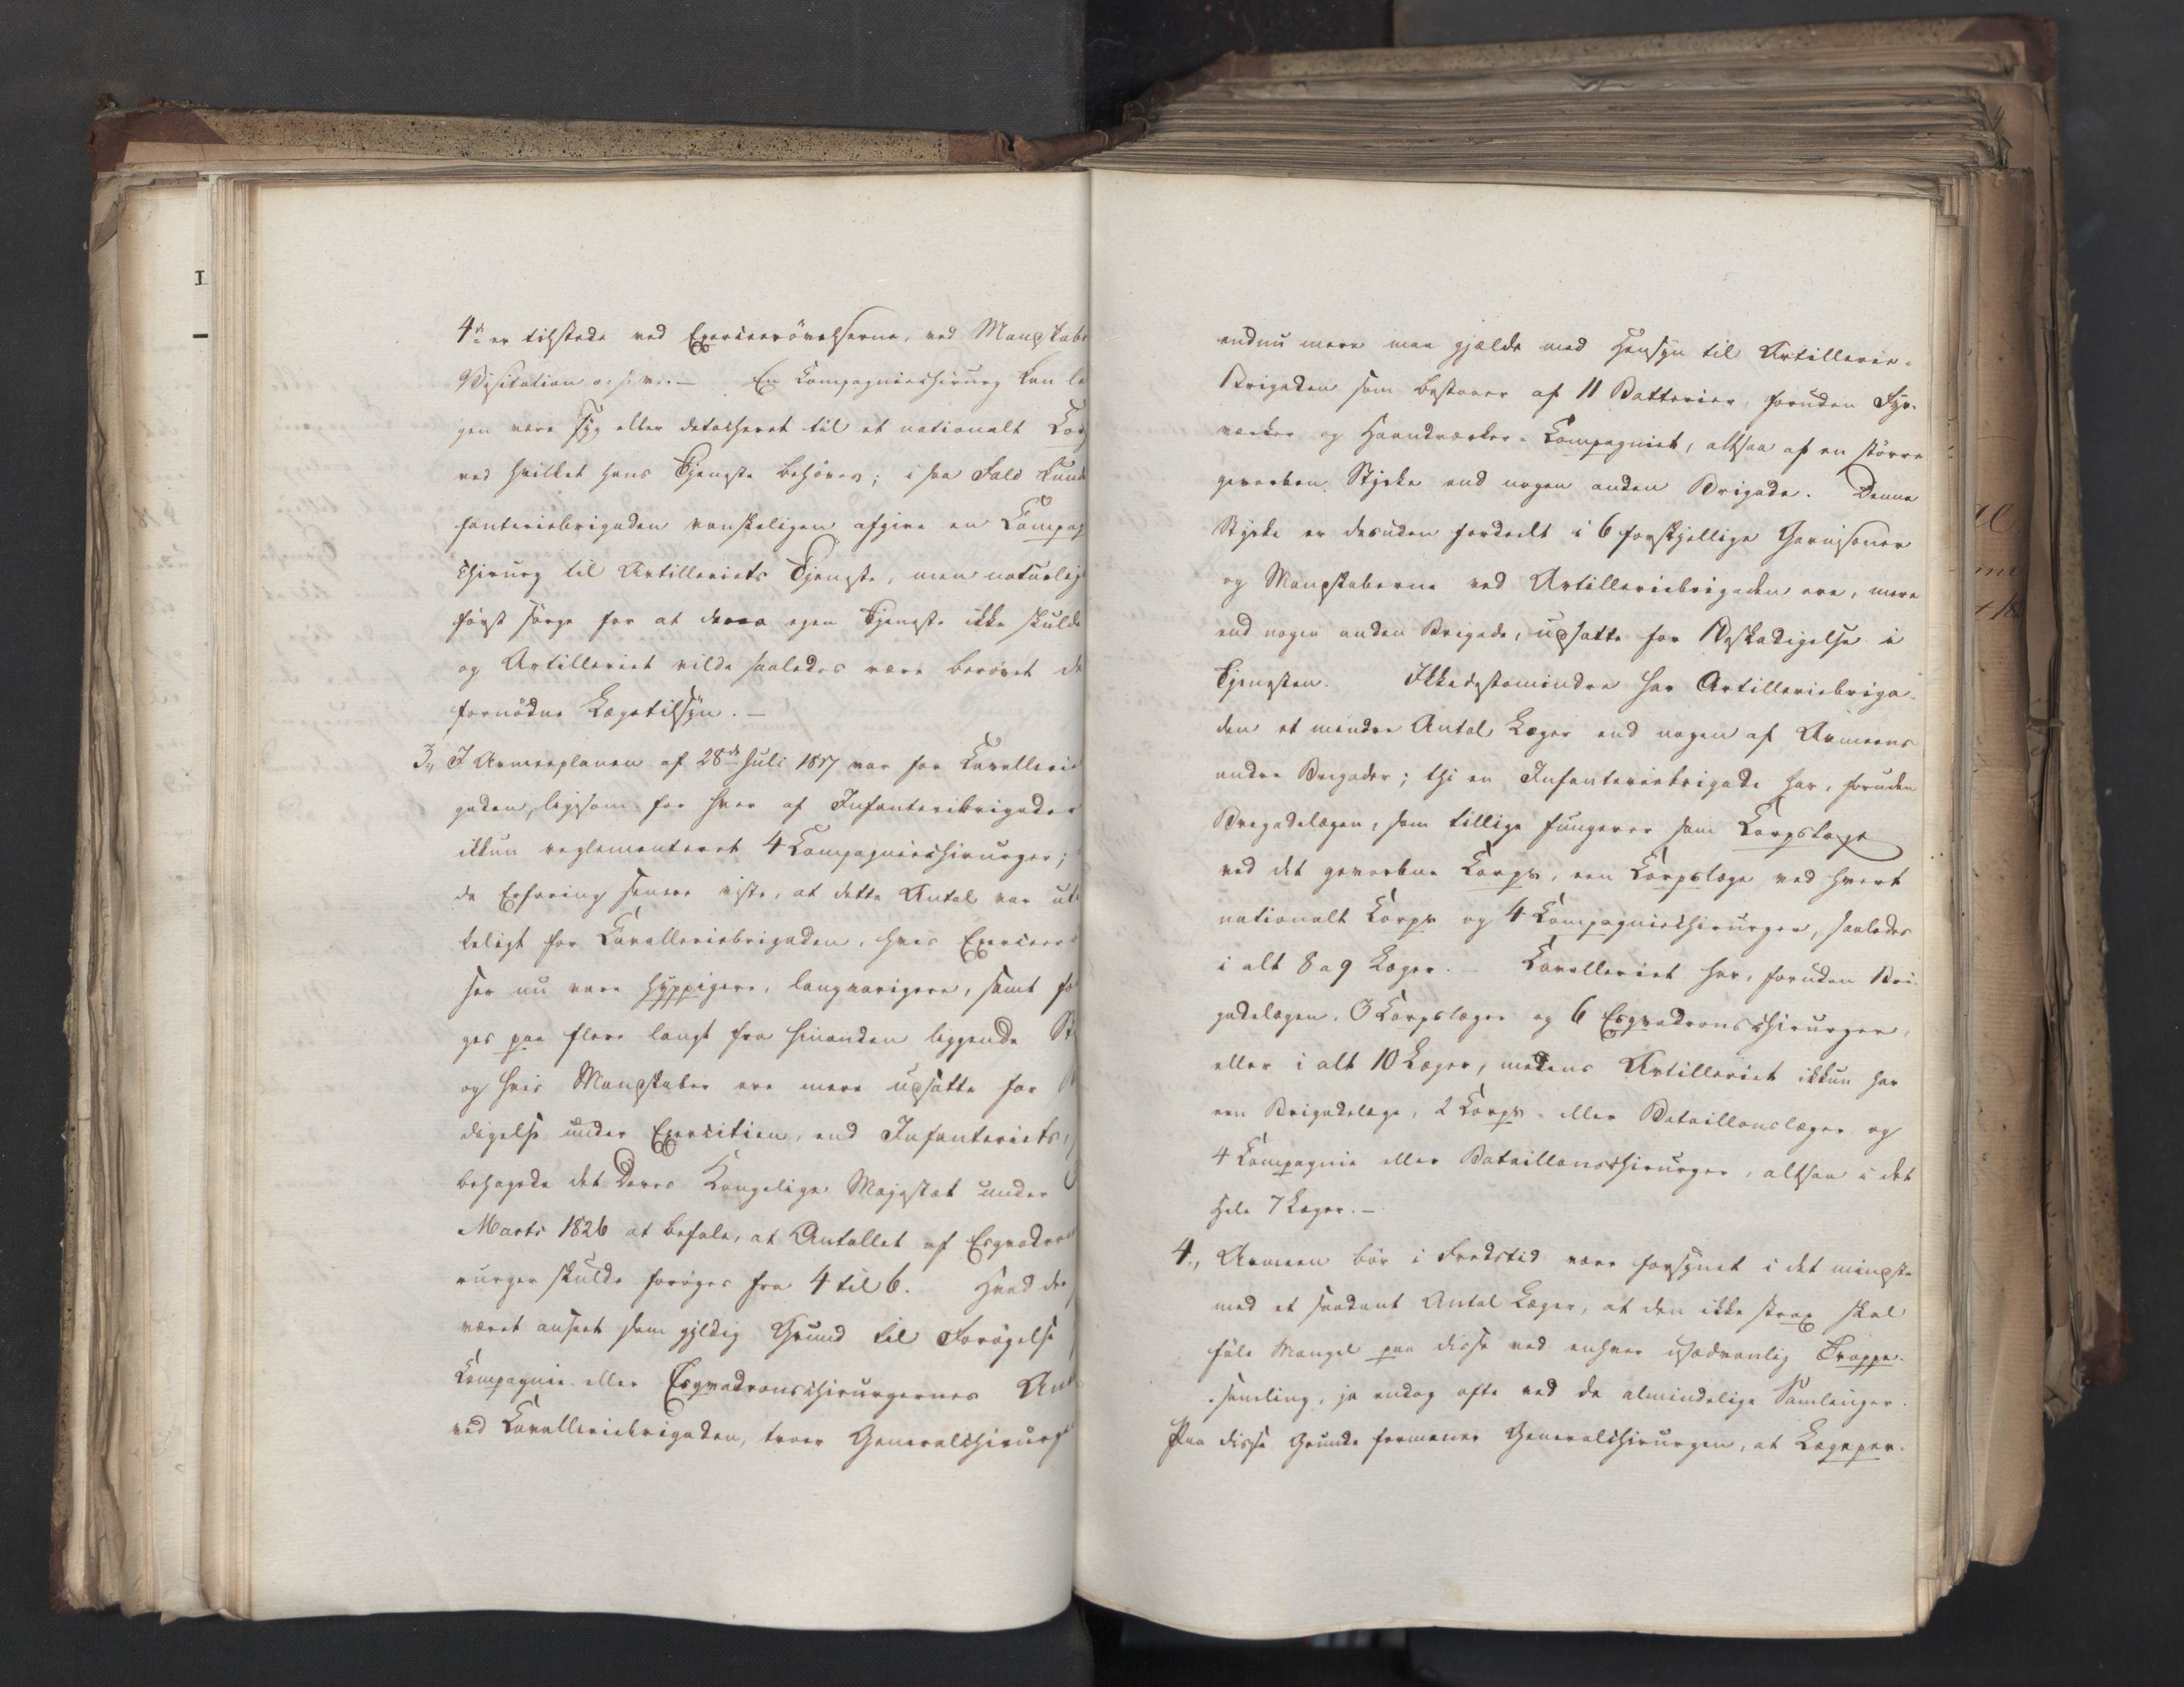 4de er tilstede ved Exerceerövelserne, ved Mandskabs
Visitation o: s: v:. — En Compagniechirurg kan le
gen være syg eller detascheret til et nationalt Cor
ved hvilket hans Tjeneste behöves; i saa Fald kund
fanteriebrigaden vanskeligen afgive en Compag
chirurg til Artilleriets Tjeneste, men naturlig
först sörge for at deres egen Tjeneste ikke skulde
og Artilleriet vilde saaledes være berövet de
fornödne Lægetilsyn. —
3., I Armeeplanen af 28de Juli 1817 var for Cavallerie
gaden, ligesom for hver af Infanteribrigader
ikkun reglementeret 4 Compagniechirurger;
da Erfaring senere viste, at dette Antal var uti
keligt for Cavalleriebrigaden, hvis Exerceer
ser nu vare hyppigere, langvarigere, samt fo
ges paa flere langt fra hinanden liggende St
og hvis Mandskaber ere mere udsatte for B
digelse under Exercitien, end Infanteriets,
behagede det Deres Kongelige Majestæt under
Marts 1826 at befale, at Antallet af Esqvadron
rurger skulde foröges fra 4 til 6. Hvad der
været anseet som gyldig Grund til Forögelse
Compagnie- eller Esqvadronschirurgernes Ant
ved Cavalleriebrigaden, troer Generalchirurg
endnu mere maa gjælde med Hensyn til Artillerie-
Brigaden som bestaaer af 11 Batterier, foruden Fyr-
værker og Haandværker-Compagniet, altsaa af en större
geworben Styrke end nogen anden Brigade. Denne
Styrke er desuden fordeelt i 6 forskjellige Garnisoner
og Mandskaberne ved Artilleriebrigaden ere, mere
end nogen anden Brigade, udsatte for Beskadigelse i
Tjenesten. Ikkedestomindre har Artilleriebriga-
den et mindre Antal Læger end nogen af Armeens
andre Brigader; thi en Infanteriebrigade har, foruden
Brigadelægen, som tillige fungerer som Corpslæge
ved det gevorbne Corps, een Corpslæge ved hvert
nationalt Corps og 4 Compagniechirurger, saaledes
i alt 8 a 9 Læger. — Cavalleriet har, foruden Bri-
gadelægen, 3 Corpslæger og 6 Esqvadronschirurger,
eller i alt 10 Læger, medens Artilleriet ikkun har
een Brigadelæge, 2 Corps- eller Bataillonslæger og
4 Compagnie eller Bataillonschirurger, altsaa i det
Hele 7 Læger. —
4., Armeen bör i Fredstid være forsynet i det mindste
med et saadant Antal Læger, at den ikke strax skal
föle Mangel paa disse ved enhver usædvanlig Troppe-
samling, ja endog ofte ved de almindelige Samlinger.
Paa disse Grunde formener Generalchirurgen, at Lægeper-